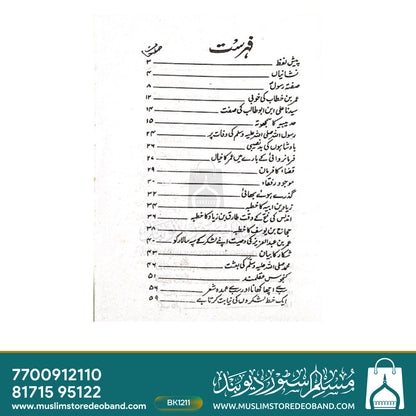 فہرست
صفحہ نمبر
پیش لفظ ۳
نشانیاں ۴
صفۃ رسول ۸
عمر بن خطاب کی خوبی ۱۲
سیدنا علی ابن ابو طالب کی صفت ۱۴
حدیبیہ کا سمجھوتہ ۱۵
رسول اللہ صلی اللہ علیہ وسلم کی وفات پر ۲۴
بادشاہوں کی بدنصیبی ۲۶
فرمانروائی کے بارے میں عمر کا خیال ۲۷
قضاء کا فرمان ۲۹
موجود رفقاء ۳۰
گذرے ہوئے بھائی ۳۲
زیاد بن ابیہ کا خطبہ ۳۴
اندلس کی فتح کے وقت طارق بن زیاد کا خطبہ ۳۶
حجاج بن یوسف کا خطبہ ۳۸
عمر بن عبدالعزیز کی وصیت اپنے لشکر کے سپہ سالار کو ۴۰
شکار کا بیان ۴۳
محمد صلی اللہ علیہ وسلم کی بعثت ۴۶
کنجوس عقلمند ۵۱
سب سے اچھا کھانا اور سب سے عمدہ شعر ۵۶
ایک خط لشکروں کی نیابت کرتا ہے ۵۹
7700912110
81715 95122
www.muslimstoredeoband.com
BK1211
مسلم سٹور دیوبند
WWW.MUSLIMSTOREDEOBAND.COM